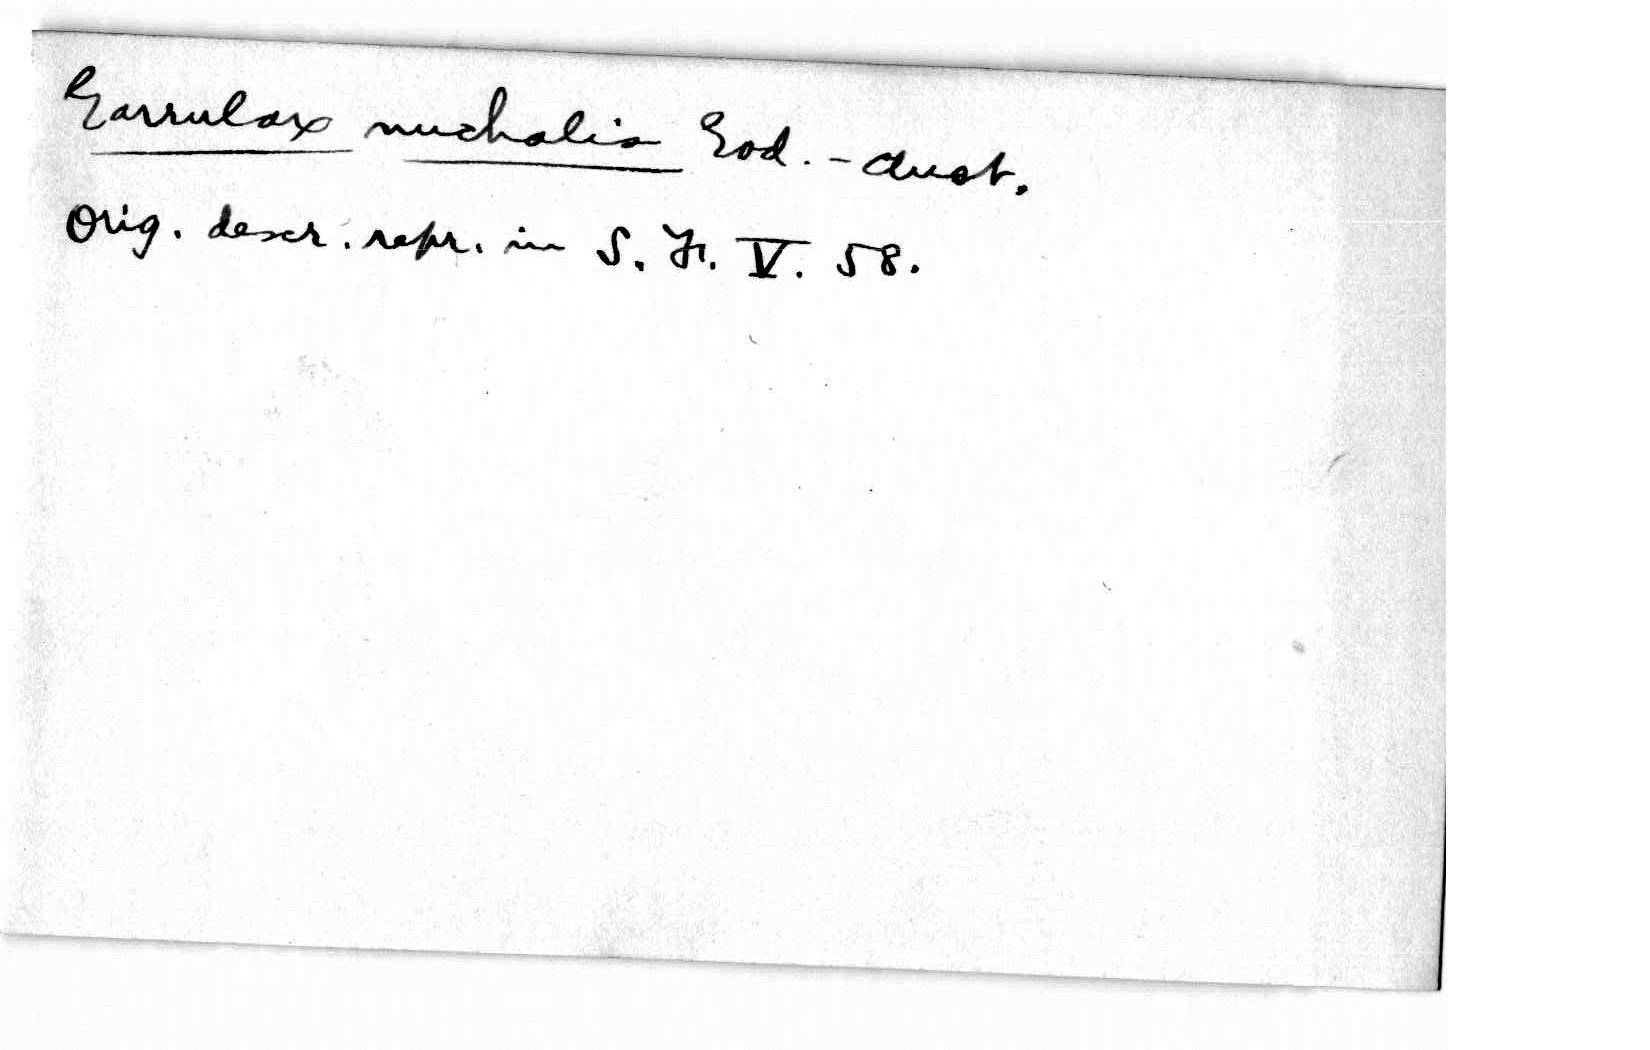 Garrulax nuchalis God.-Aust.
Orig. descr. repr. in S. F. V. 58.